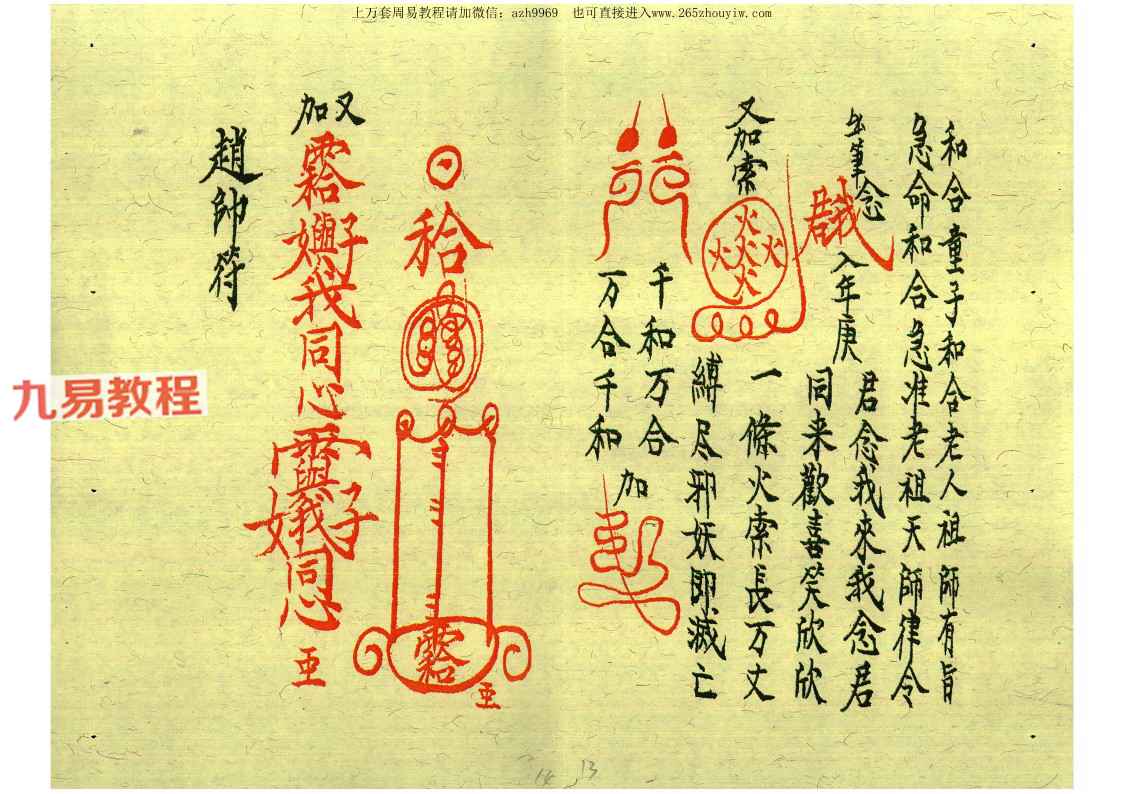 上万套周易教程请加微信：azh9969　也可直接进入www.265zhouyiw.com
和合童子和合老人祖師有旨
急命和合急准老祖天師律令
筆念
入年庚
君念我來我念君
同来歡喜笑欣欣
又加索
火
火火火
火
一條火索長万丈
縛尽邪妖即滅亡
千和万合
万合千和
加
又加
我同心
同心
趙帥符
九易教程
13